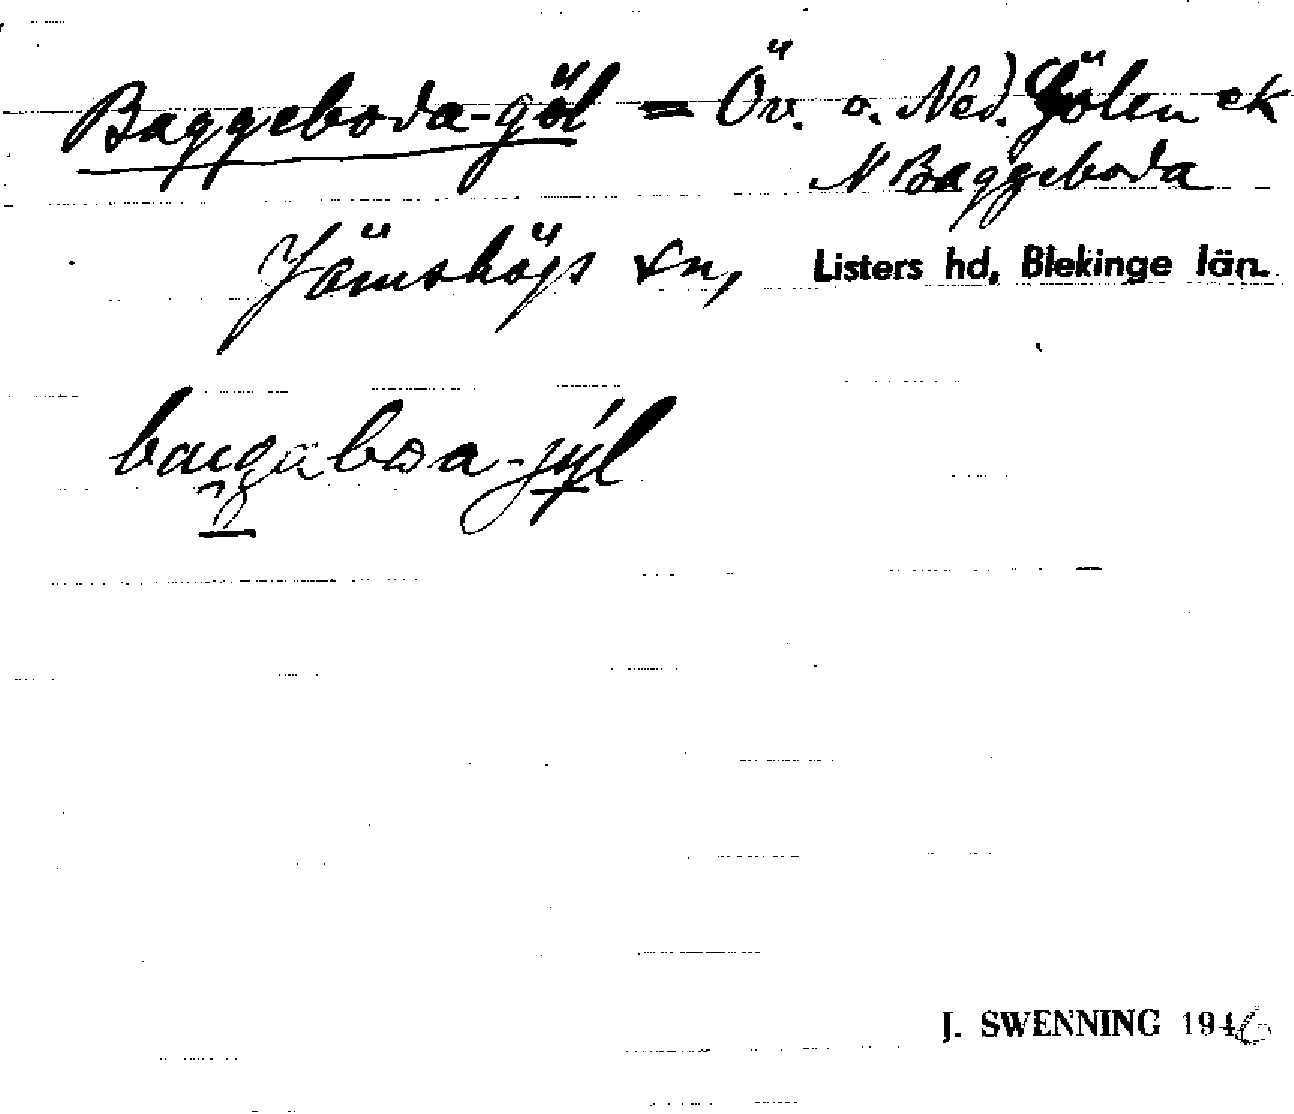 Baggeboda-göl = Öv. o. Ned. Gölen ek
N Baggeboda
Jämshögs sn, Listers hd, Blekinge län.
J. SWENNING 1946